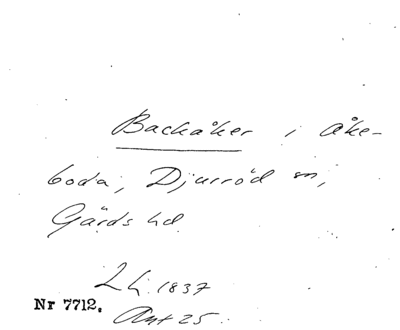 Backåker i Åke-
boda, Djurröd sn,
Gärds hd
Lh 1837
Nr 7712.
Akt 25